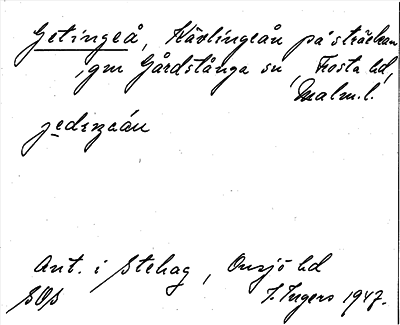 Getingeå, Kävlingeån på sträckan
, gm Gårdstånga sn, Frosta hd,
Malm. l.
jedɪŋaán
Ant. i Stehag, Onsjö hd
SOS I. Ingers 1947.